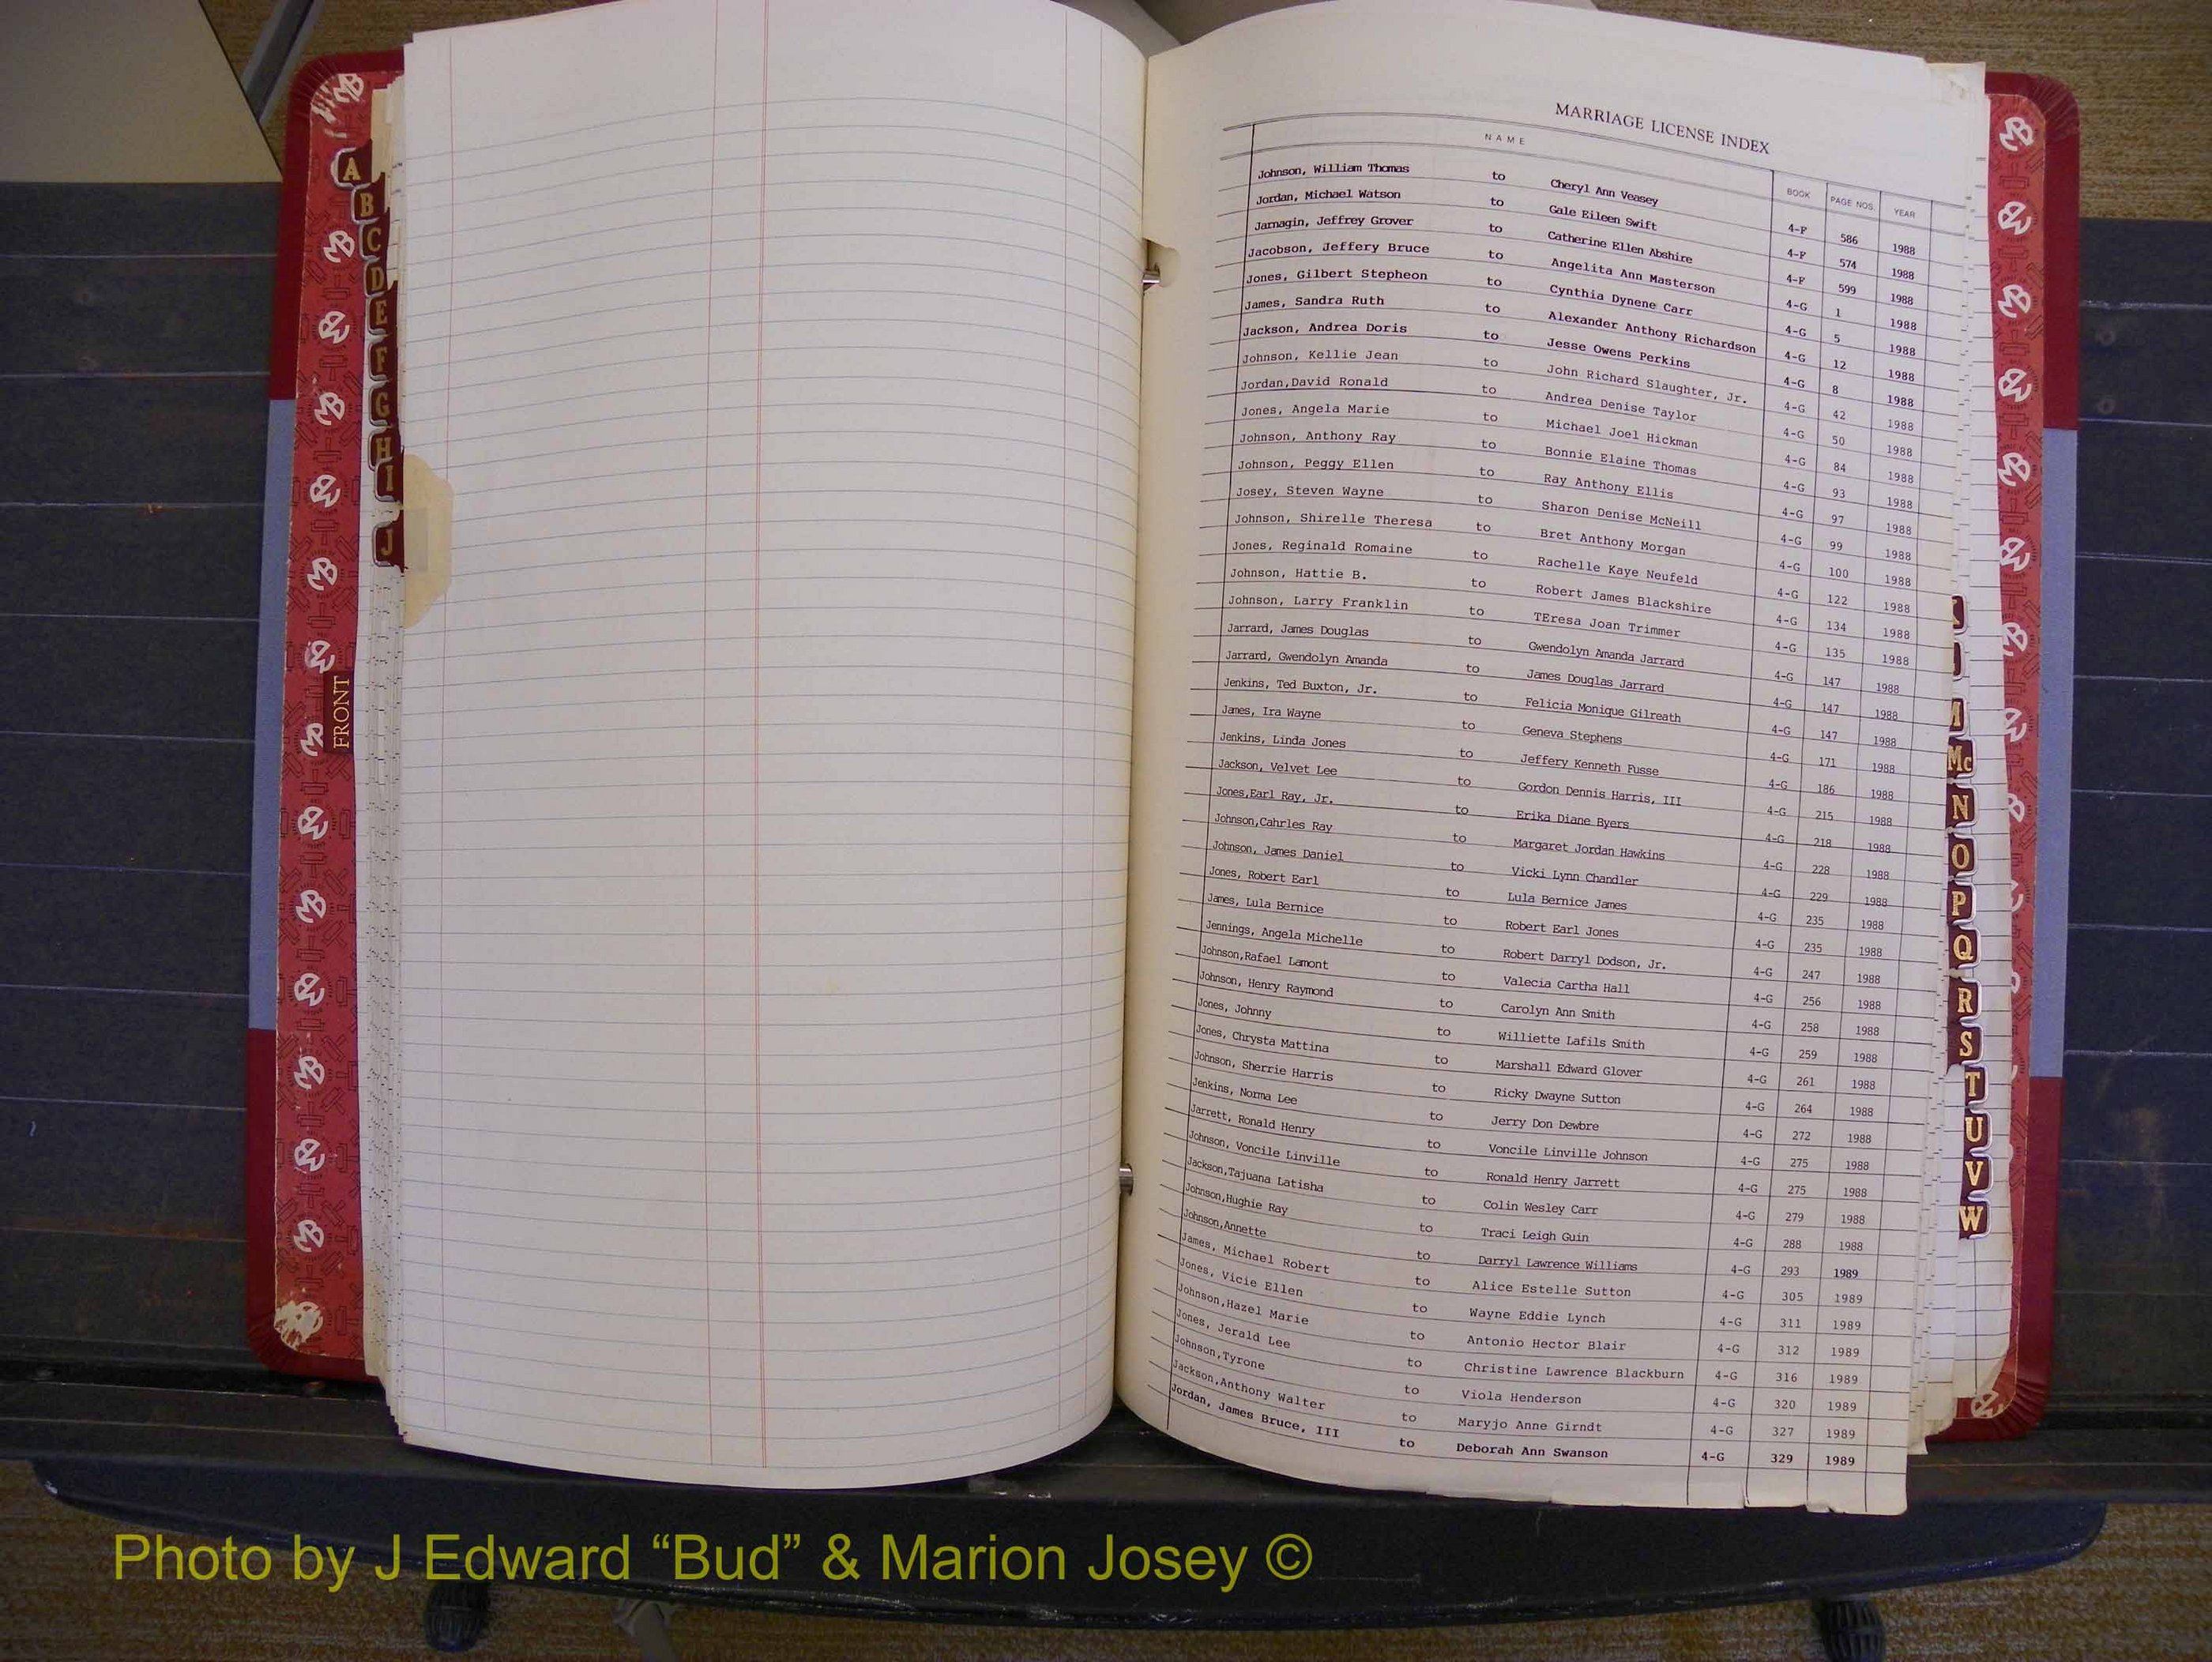 A
B
C
D
E
F
G
H
I
J
FRONT
MARRIAGE LICENSE INDEX
NAME BOOK PAGE NOS. YEAR
Johnson, William Thomas to Cheryl Ann Veasey 4-F 586 1988
Jordan, Michael Watson to Gale Eileen Swift 4-F 574 1988
Jarnagin, Jeffrey Grover to Catherine Ellen Abshire 4-F 599 1988
Jacobson, Jeffery Bruce to Angelita Ann Masterson 4-G 1 1988
Jones, Gilbert Stepheon to Cynthia Dynene Carr 4-G 5 1988
James, Sandra Ruth to Alexander Anthony Richardson 4-G 12 1988
Jackson, Andrea Doris to Jesse Owens Perkins 4-G 8 1988
Johnson, Kellie Jean to John Richard Slaughter, Jr. 4-G 42 1988
Jordan,David Ronald to Andrea Denise Taylor 4-G 50 1988
Jones, Angela Marie to Michael Joel Hickman 4-G 84 1988
Johnson, Anthony Ray to Bonnie Elaine Thomas 4-G 93 1988
Johnson, Peggy Ellen to Ray Anthony Ellis 4-G 97 1988
Josey, Steven Wayne to Sharon Denise McNeill 4-G 99 1988
Johnson, Shirelle Theresa to Bret Anthony Morgan 4-G 100 1988
Jones, Reginald Romaine to Rachelle Kaye Neufeld 4-G 122 1988
Johnson, Hattie B. to Robert James Blackshire 4-G 134 1988
Johnson, Larry Franklin to TEresa Joan Trimmer 4-G 135 1988
Jarrard, James Douglas to Gwendolyn Amanda Jarrard 4-G 147 1988
Jarrard, Gwendolyn Amanda to James Douglas Jarrard 4-G 147 1988
Jenkins, Ted Buxton, Jr. to Felicia Monique Gilreath 4-G 147 1988
James, Ira Wayne to Geneva Stephens 4-G 171 1988
Jenkins, Linda Jones to Jeffery Kenneth Fusse 4-G 186 1988
Jackson, Velvet Lee to Gordon Dennis Harris, III 4-G 215 1988
Jones,Earl Ray, Jr. to Erika Diane Byers 4-G 218 1988
Johnson,Cahrles Ray to Margaret Jordan Hawkins 4-G 228 1988
Johnson, James Daniel to Vicki Lynn Chandler 4-G 229 1988
Jones, Robert Earl to Lula Bernice James 4-G 235 1988
James, Lula Bernice to Robert Earl Jones 4-G 235 1988
Jennings, Angela Michelle to Robert Darryl Dodson, Jr. 4-G 247 1988
Johnson,Rafael Lamont to Valecia Cartha Hall 4-G 256 1988
Johnson, Henry Raymond to Carolyn Ann Smith 4-G 258 1988
Jones, Johnny to Williette Lafils Smith 4-G 259 1988
Jones, Chrysta Mattina to Marshall Edward Glover 4-G 261 1988
Johnson, Sherrie Harris to Ricky Dwayne Sutton 4-G 264 1988
Jenkins, Norma Lee to Jerry Don Dewbre 4-G 272 1988
Jarrett, Ronald Henry to Voncile Linville Johnson 4-G 275 1988
Johnson, Voncile Linville to Ronald Henry Jarrett 4-G 275 1988
Jackson,Tajuana Latisha to Colin Wesley Carr 4-G 279 1988
Johnson,Hughie Ray to Traci Leigh Guin 4-G 288 1988
Johnson,Annette to Darryl Lawrence Williams 4-G 293 1989
James, Michael Robert to Alice Estelle Sutton 4-G 305 1989
Jones, Vicie Ellen to Wayne Eddie Lynch 4-G 311 1989
Johnson,Hazel Marie to Antonio Hector Blair 4-G 312 1989
Jones, Jerald Lee to Christine Lawrence Blackburn 4-G 316 1989
Johnson,Tyrone to Viola Henderson 4-G 320 1989
Jackson,Anthony Walter to Maryjo Anne Girndt 4-G 327 1989
Jordan, James Bruce, III to Deborah Ann Swanson 4-G 329 1989
Mc
N
O
P
Q
R
S
T
U
V
W
Photo by J Edward “Bud” & Marion Josey ©